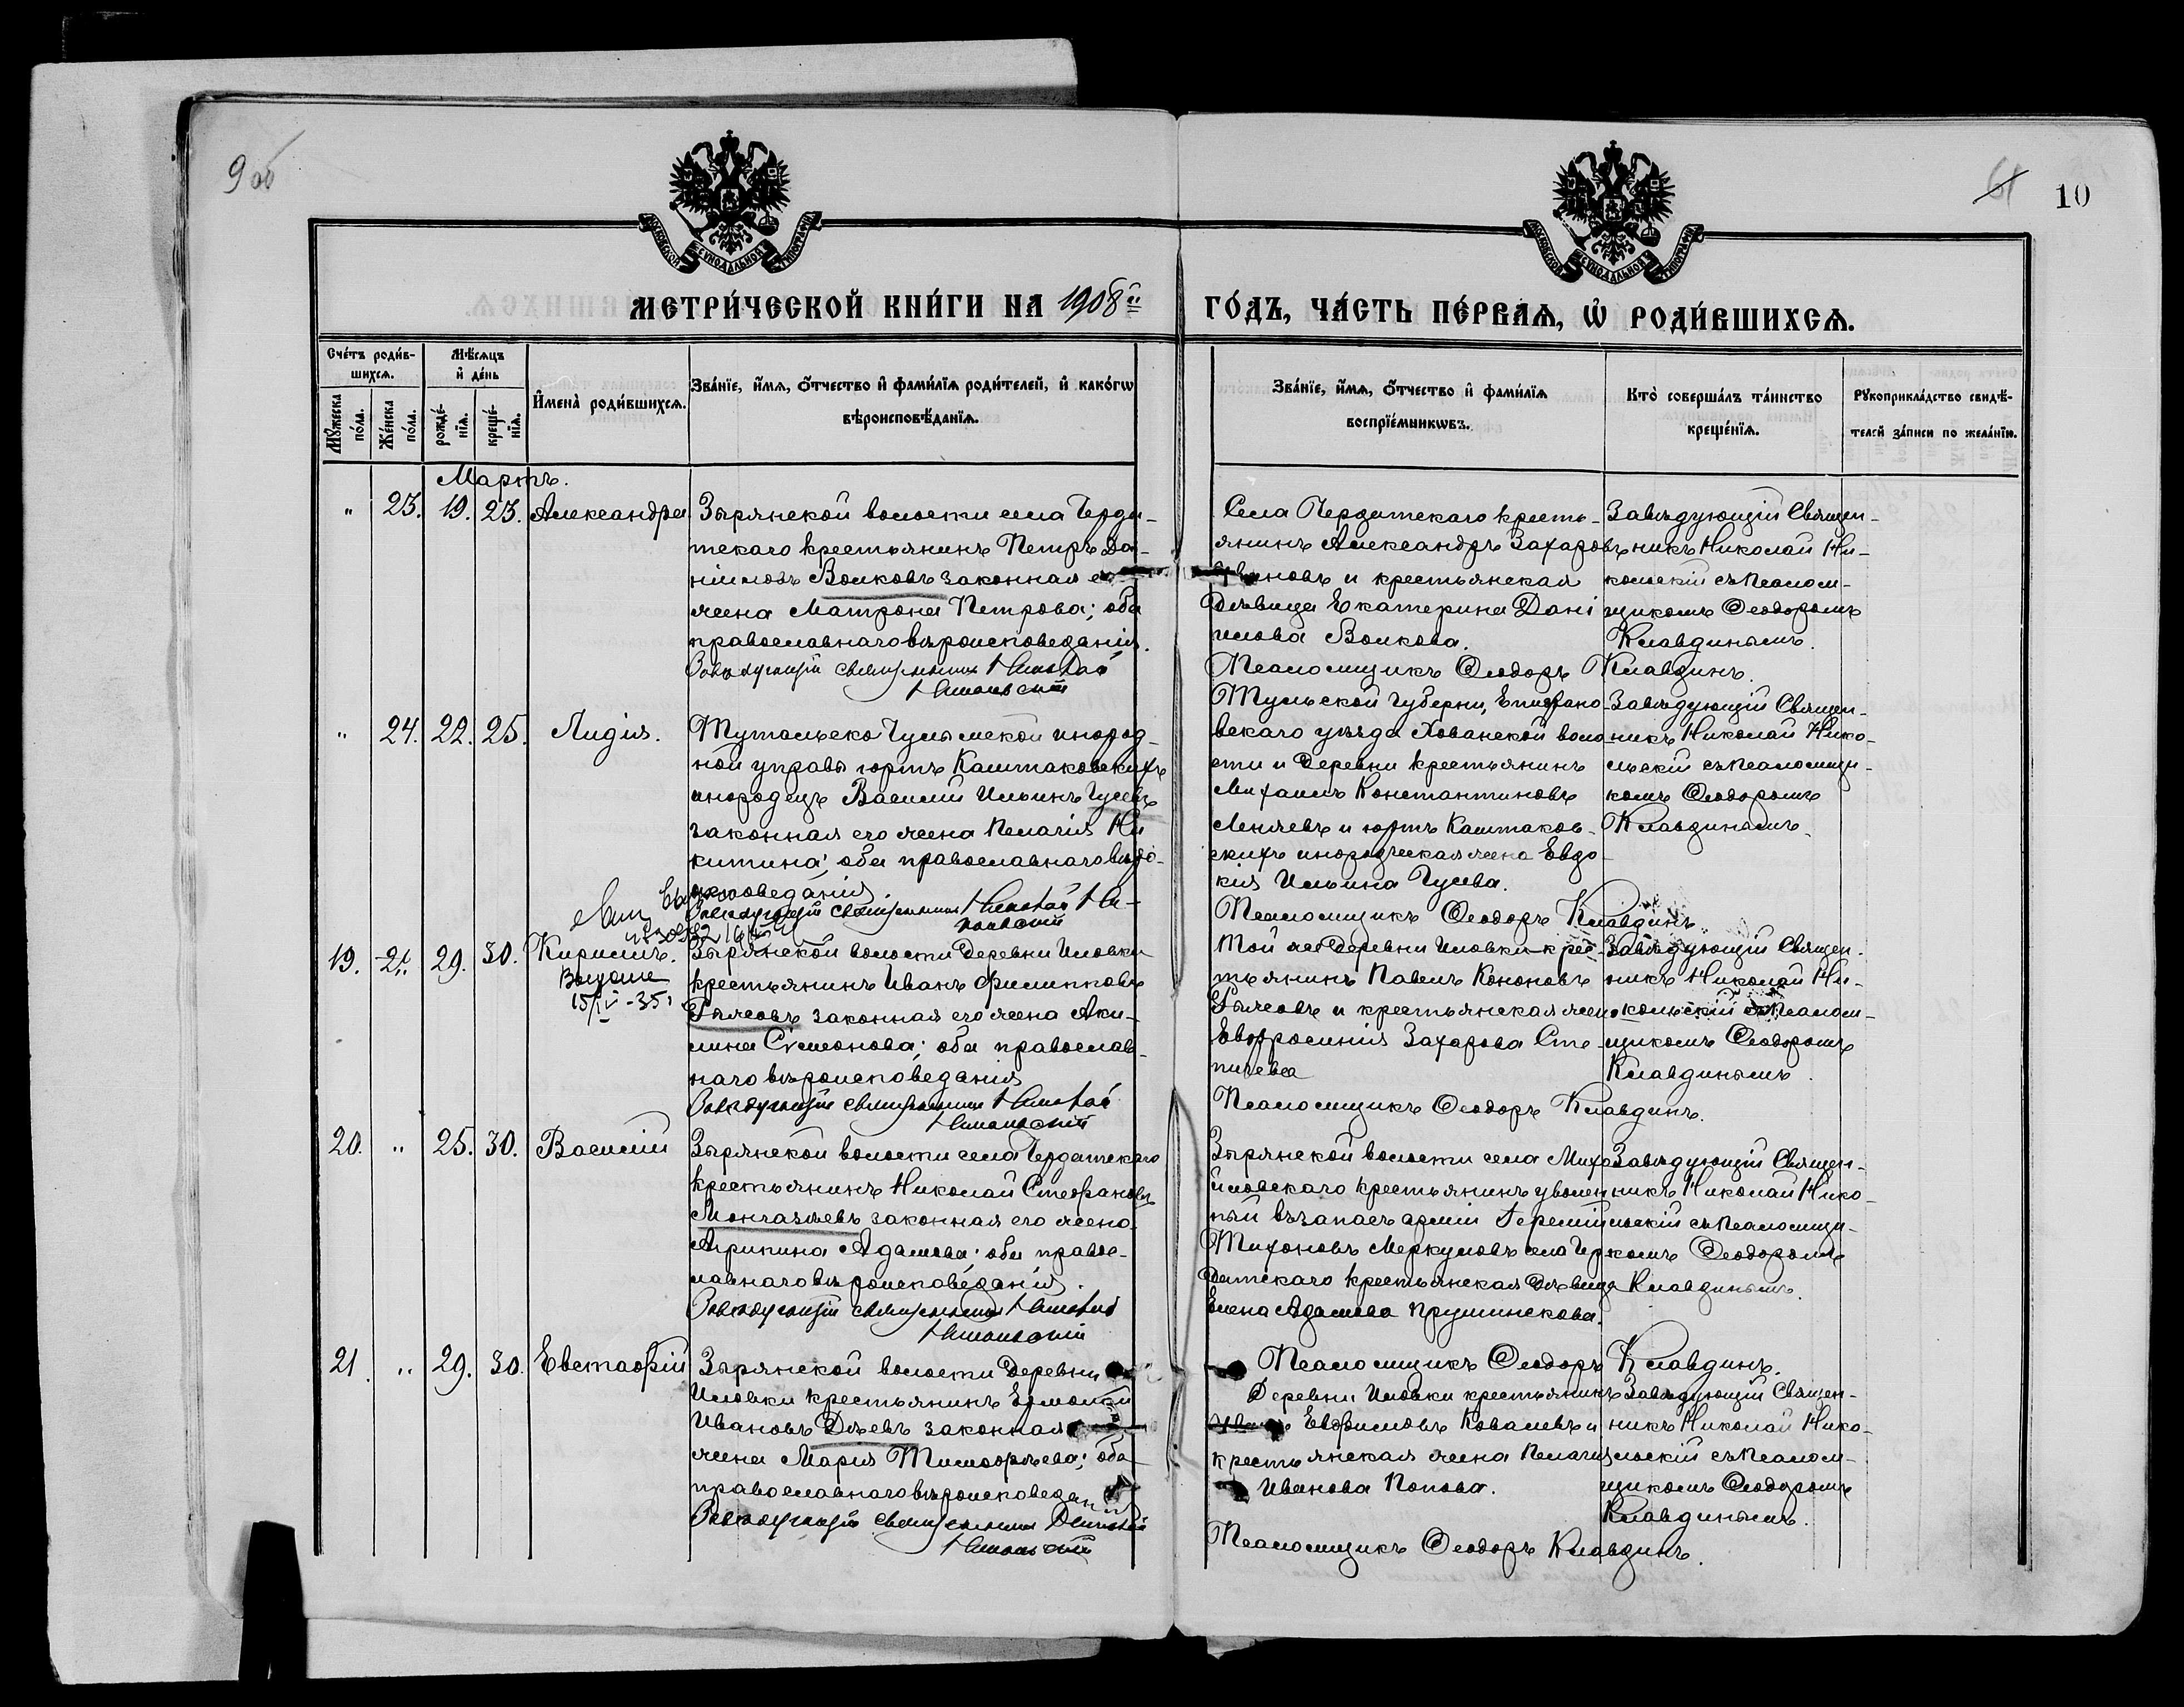 9об
61
10
МЕТРИ́ЧЕСКОЙ КНИ́ГИ НА 1908й
ГО́ДЪ, ЧА́СТЬ ПЕ́РВАѦ, Ѡ РОДИ́ВШИХСѦ.
Сче́тъ роди́в-
шихсѧ.
Мѣ́сѧцъ
и де́нь
Мꙋ́жеска
по́ла.
Же́нска
по́ла.
рожде́-
нїѧ.
креще́-
нїѧ.
И҆мена̀ роди́вшихсѧ.
Зва́нїе, и҆́мѧ, ѻ҆́тчество и҆ фами́лїѧ роди́телей, и҆ како́гѡ
вѣроисповѣ́данїѧ.
Зва́нїе, и҆́мѧ, ѻ҆́тчество и҆ фами́лїѧ
воспрїе́мникѡвъ.
Кто̀ соверша́лъ та́инство
креще́нїѧ.
Рꙋкоприкла́дство свидѣ́-
телей за́писи по жела́нїю.
Мартъ.
" 23. 19. 23. Александра
Зырянской волости села Черда-
тскаго крестьянинъ Петръ Да-
ніиловъ Волковъ законная
жена Матрона Петрова; оба
православнаго вѣроисповеданія.
Завѣдующій священникъ Николай
Никольскій
Села Чердатскаго кресть-
янинъ Александръ Захаровъ
Ивановъ и крестьянская
Дѣвица Екатерина Дані
илова Волкова.
Псаломщикъ Ѳеодоръ Клавдинъ.
Завѣдующій Священ-
никъ Николай Ни-
кольскій съ Псалом-
щикомъ Ѳеодоромъ
Клавдинымъ.
" 24. 22. 25. Лидія.
Тутальско Чулымской инород-
ной управы юртъ Каштаковскихъ
инородецъ Василій Ильинъ Гусевъ
законная его жена Пелагія Ни
китина; оба православнаго вѣро-
исповеданія.
Завѣдующій священникъ Николай Ни-
кольскій
Тульской губерни, Епифано-
вскаго уѣзда Хованской воло-
сти и Деревни крестьянинъ
Михаилъ Константиновъ
Леняевъ и юртъ Каштаков-
скихъ инородческая жена Евдо-
кія Ильина Гусева.
Псаломщикъ Ѳеодоръ Клавдинъ.
Завѣдующій Священ-
никъ Николай Нико-
льскій съ Псаломщи-
комъ Ѳеодоромъ
Клавдинымъ.
19. " 29. 30. Кириллъ.
15/IV-35
Зырянской волости Деревни Иловки
крестьянинъ Иванъ Филипповъ
законная его жена Аки-
лина Сімеонова; оба православ-
наго вѣроисповеданія
Завѣдующій священникъ Николай
Никольскій
Той же Деревни Иловки крес-
тьянинъ Павелъ Кононовъ
и крестьянская жена
Евфросинія Захарова Сте-
пичева
Псаломщикъ Ѳеодоръ Клавдинъ.
Завѣдующій Священ-
никъ Николай Ни-
кольскій съ Псалом-
щикомъ Ѳеодоромъ
Клавдинымъ.
20. " 25. 30. Василій
Зырянской волости села Чердатскаго
крестьянинъ Николай Стефановъ
Мончазяевъ законная его жена
Агрипина Адамова; оба правос-
лавнаго вѣроисповеданія.
Завѣдующій священникъ Николай
Никольскій
Зырянской волости села Миха
йловскаго крестьянинъ уволен
ный въ запасъ арміи Іеремій
Тихоновъ Меркуловъ села Чер
датскаго крестьянская Дѣвица
Елена Адамова Прушинскова.
Псаломщикъ Ѳеодоръ Клавдинъ.
Завѣдующій Священ-
никъ Николай Нико-
льскій съ Псаломщи-
комъ Ѳеодоромъ
Клавдинымъ.
21. " 29. 30. Евстафій
Зырянской волости Деревни
Иловки крестьянинъ Ермолай
Ивановъ Дѣевъ законная
жена Марія Тимофѣева; оба
православнаго вѣроисповедан
Завѣдующій священникъ Николай
Никольскій
Деревни Иловки крестьянинъ
Евфимовъ Ковалевъ и
крестьянская жена Пелагія
Иванова Попова.
Псаломщикъ Ѳеодоръ Клавдинъ.
Завѣдующій Священ-
никъ Николай Нико-
льскій съ Псалом-
щикомъ Ѳеодоромъ
Клавдинымъ.